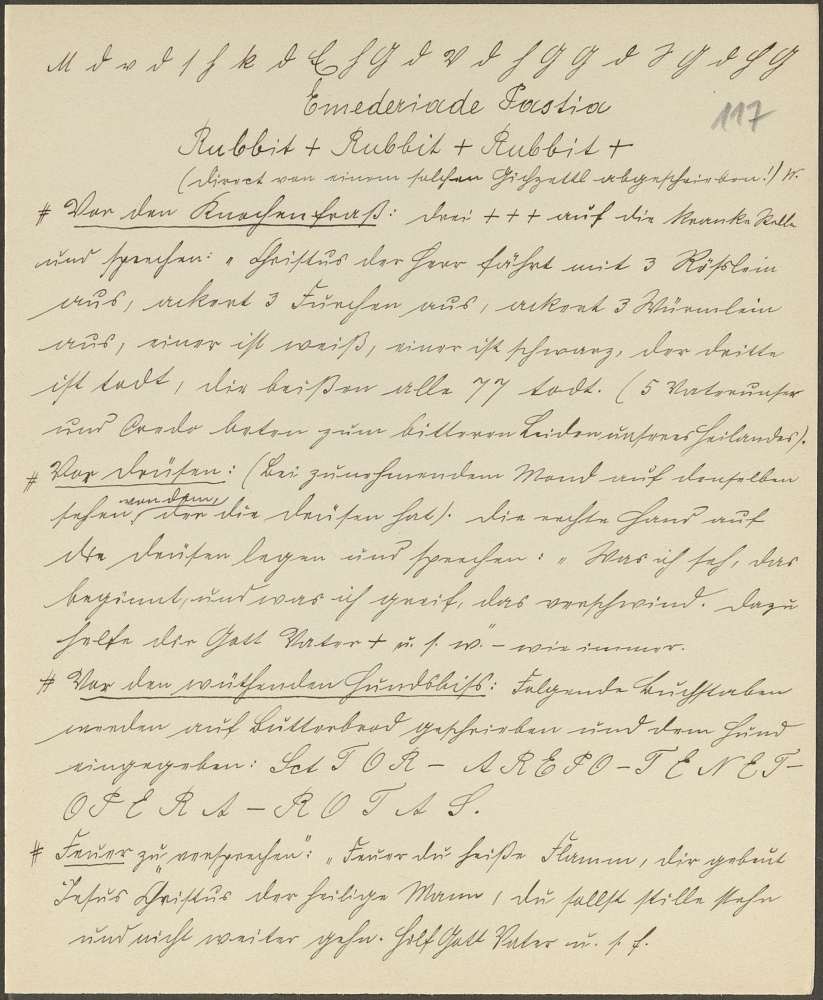 M d v d 1 h k d E h G d V d h G G d I G d H G
Emederiade Pastia
117
Rubbit + Rubbit + Rubbit +
(direct von einem solchen Gichtzettl abgeschrieben!)
# Vor den Knochenfraß: drei + + + auf die kranke Stelle
und sprechen: „Christus der Herr fährt mit 3 Rößlein
aus, ackert 3 Furchen aus, ackert 3 Würmlein
aus, einer ist weiß, einer ist schwarz, der dritte
ist todt, die beißen alle 77 todt. (5 Vaterunser
und Credo beten zum bitteren Leiden unseres Heilandes).
# Vor Drüsen: (Bei zunehmendem Mond auf denselben
sehen, von dem, der die Drüsen hat). Die rechte Hand auf
die Drüsen legen und sprechen: „Was ich seh, das
beginnt, und was ich greif, das verschwind. Dazu
helfe dir Gott Vater + u. s. w." – wie immer.
# Vor den wüthenden Hundsbiß: Folgende Buchstaben
werden auf Butterbrod geschrieben und dem Hund
eingegeben: Sct T O R – A R E P O – T E N E T –
O P E R A – R O T A S.
# Feuer zu „versprechen": „Feuer du heiße Flamm, dir gebeut
Jesus Christus der heilige Mann, du sollst stille stehn
und nicht weiter gehn. Helf Gott Vater u. s. f.